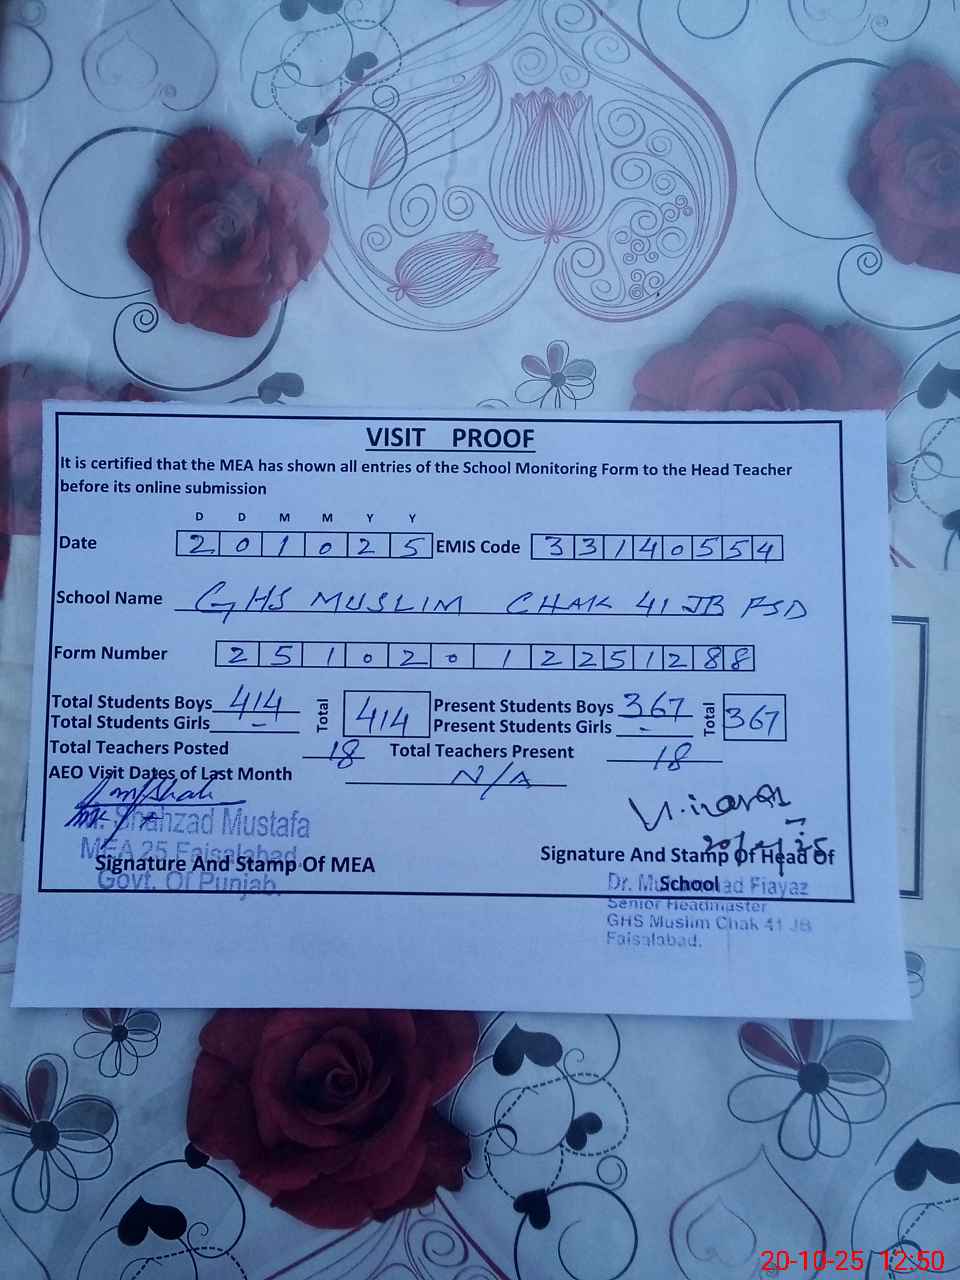 VISIT PROOF
It is certified that the MEA has shown all entries of the School Monitoring Form to the Head Teacher
before its online submission
D D M M Y Y
Date 2 0 1 0 2 5 EMIS Code 3 3 1 4 0 5 5 4
School Name GHS MUSLIM CHAK 41 JB FSD
Form Number 2 5 1 0 2 0 1 2 2 5 1 2 8 8
Total Students Boys 414 Total 414 Present Students Boys 367 Total 367
Total Students Girls - Present Students Girls -
Total Teachers Posted 18 Total Teachers Present 18
AEO Visit Dates of Last Month N/A
Shahzad Mustafa
MEA 25 Faisalabad
Govt. Of Punjab.
Signature And Stamp Of MEA
Signature And Stamp Of Head Of
School
Dr. Fiayaz
Senior Headmaster
GHS Muslim Chak 41 JB
Faisalabad.
20-10-25 12:50